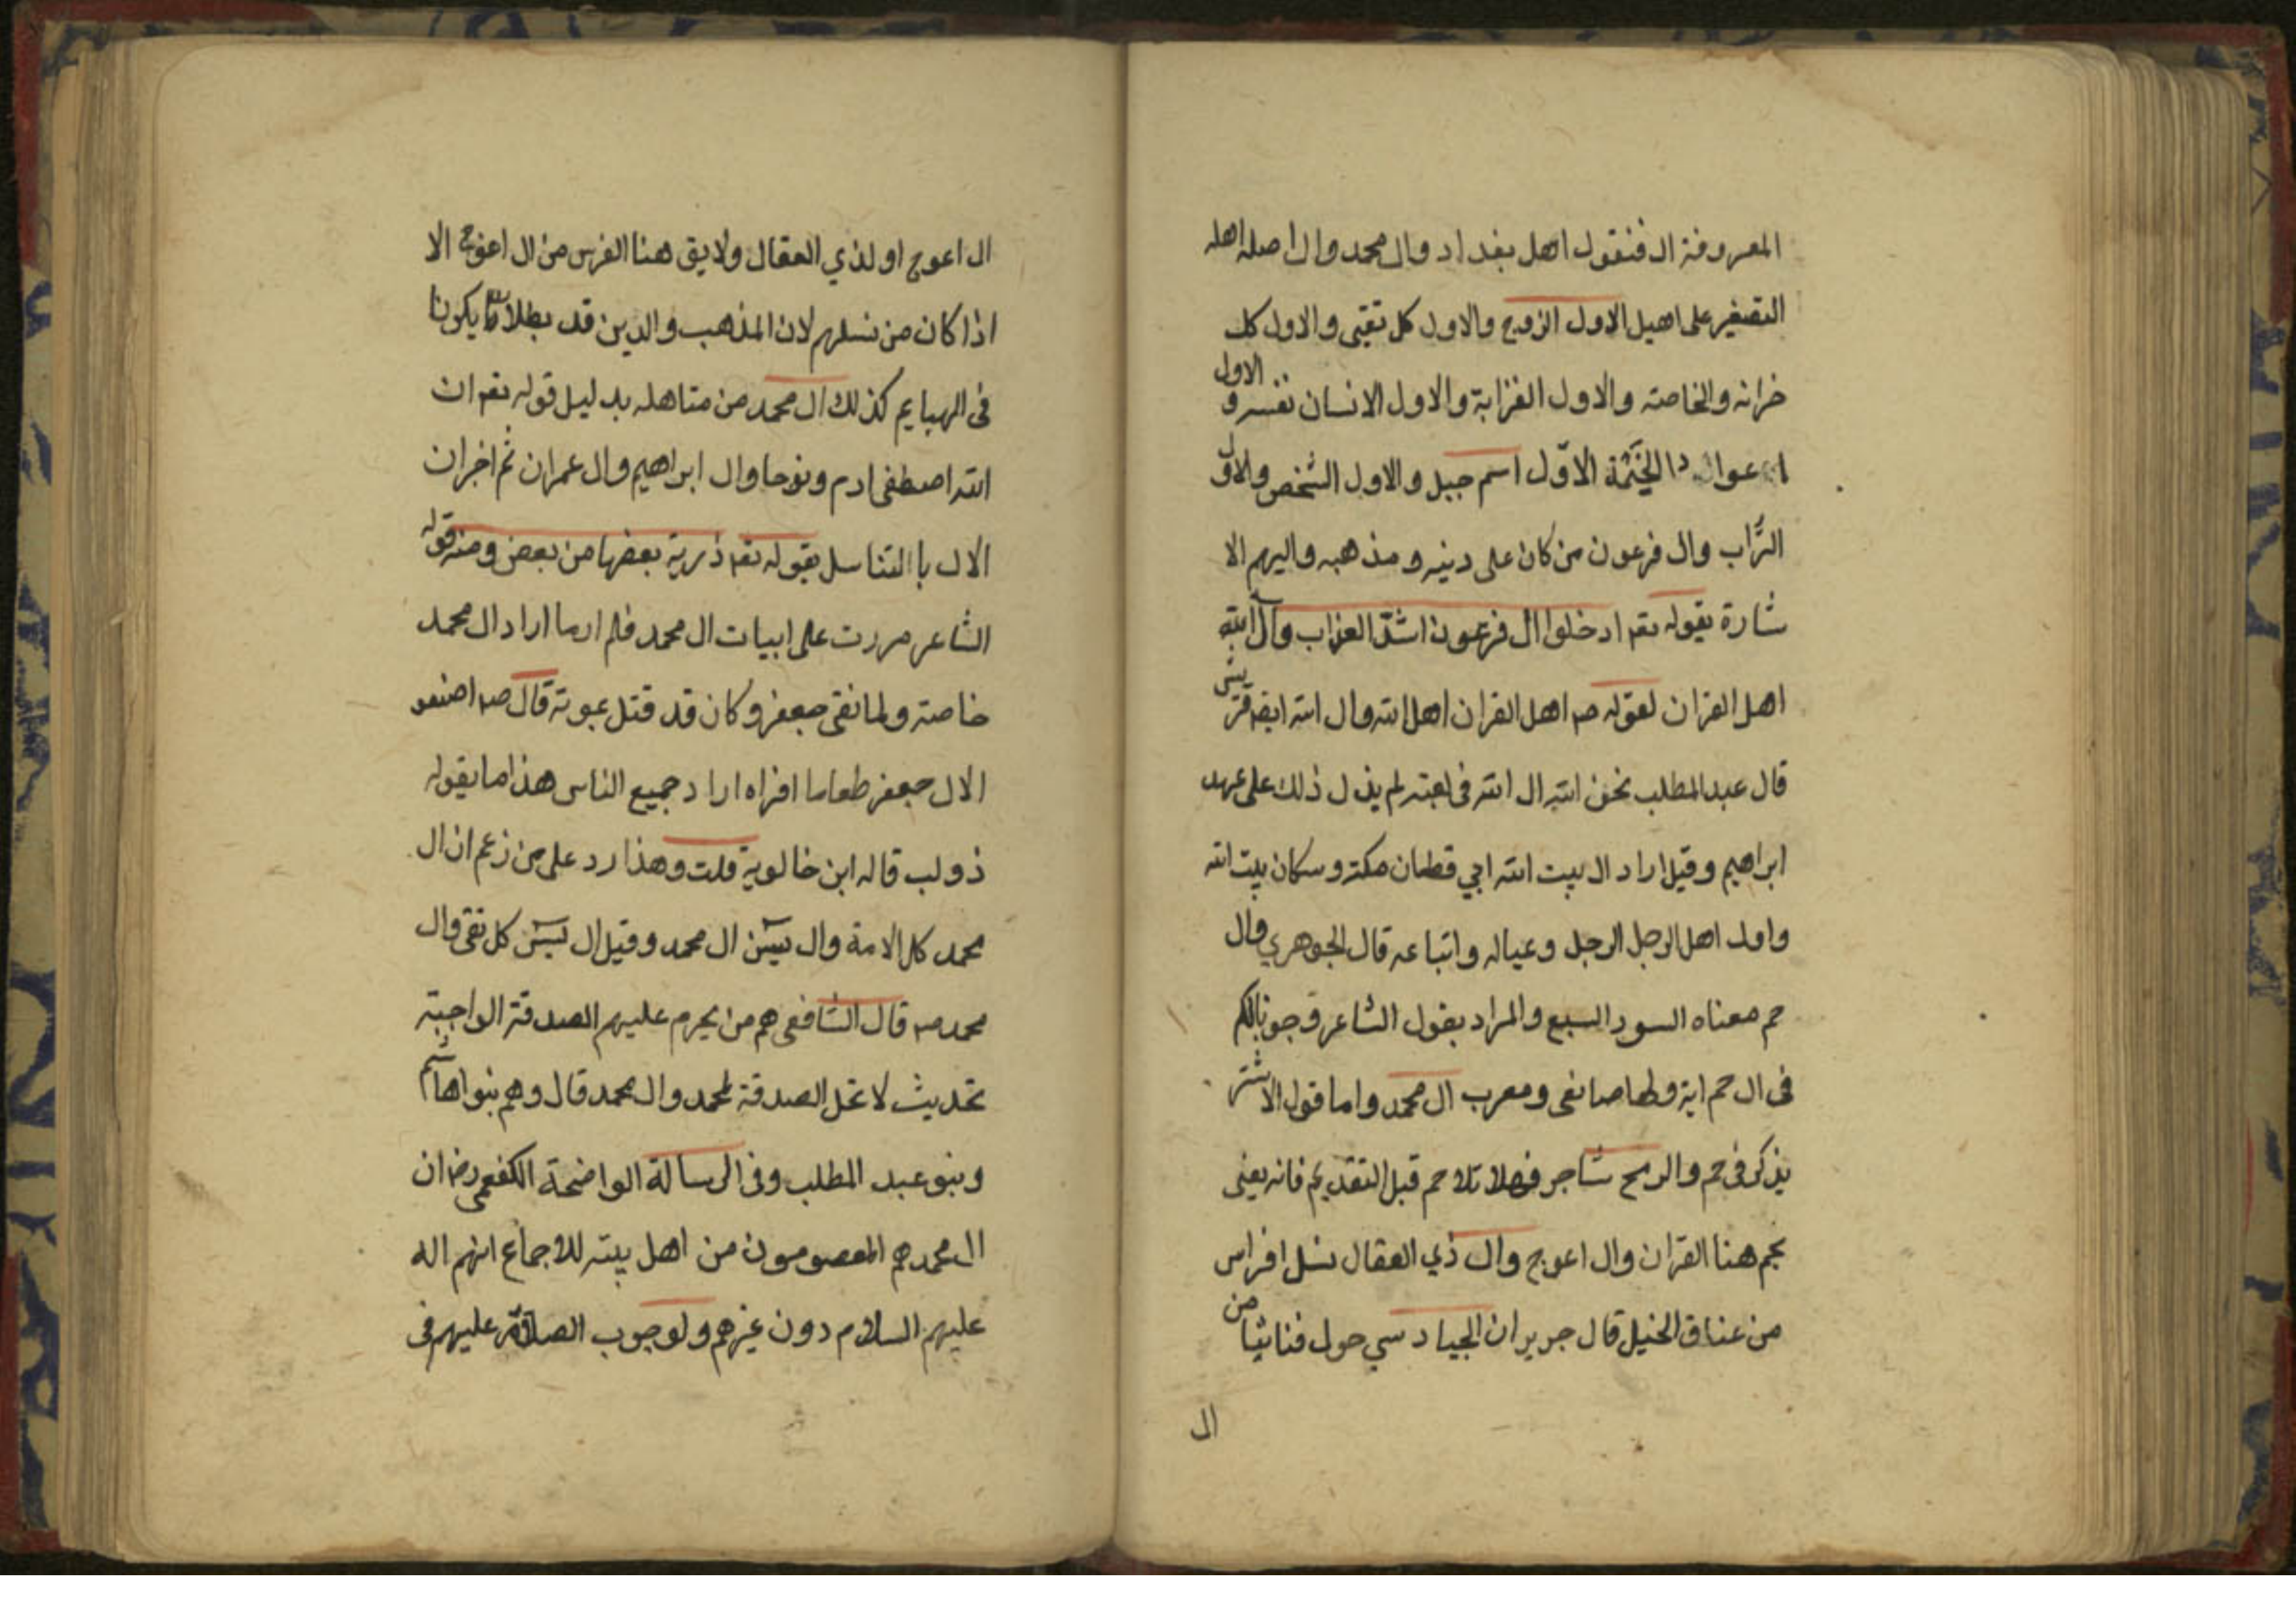 المعروفة ال فنقول اهل بغداد وال محمد وال اصله اهله
التصغير على اهيل الاول الزوج والاول كل تقتى والاول كل
خرانه والخاصته والاول الغزابة والاول الانسان نفسه و الاول
اعوال دا الخيمة الاوّل اسم جبل والاول الشخص والاول
التراب وال فرعون من كان على دينه ومذهبه واليهم الا
شارة بقوله تعه ادخلوا ال فرعون اشدّ العذاب وال الله
اهل القران لقوله صه اهل القران اهل الله وال الله ايضه قريش
قال عبد المطلب نخن الله ال الله فى لم يذل ذلك على عهد
ابراهيم وقيل اراد ال بيت الله اجي قطان مكة وسكان بيت الله
واول اهل الرجل الرجل وعياله واتباعه قال الجوهري وال
حم معناه السور السبع والمراد بقول الشاعر وجونا لكم
فى ال حم اية وطها صا نعى ومعرب ال محمد واما قول الاشتر
يذكر فى حم والرمح شاجر فهلا تلا حم قبل التقديم فانه يعنى
بحم هنا القران وال اعوج وال ذي العقال نسل افراس
من عناق الخيل قال جرير ان الجياد سي حول فنائيا من
ال
ال اعوج او لذي العقال ولا يق هنا الفرس من ال اعوج الا
اذا كان من نسلهم لان المذهب والدين قد بطلا يكونا
فى البهايم كذلك ال محمد من متاهله بدليل قوله تعه ان
الله اصطفى ادم ونوحا وال ابراهيم وال عمران ثم اخران
الال با التناسل بقوله تعه ذرية بعضها من بعض ومنه قوله
الشاعر مررت على ابيات ال محمد فلم ارما اراد ال محمد
خاصته ولما نقى جعفر وكان قد قتل عبوته قال صه اصنعو
الال جعفر طعاما افراه اراد جميع الناس هذا ما يقوله
ذولب قاله ابن خالوية قلت وهذا رد على من زعم ان ال
محمد كل الامة وال يسن ال محمد وقيل ال يسن كل تقى وال
محمد صه قال الشافعى هم من يحرم عليهم الصدقة الواجبة
تحديث لا تحل الصدقة لمحمد وال محمد قال وهم بنوا هاشم
وبنو عبد المطلب وفى الرسالة الواضحة الكفعمى رضه ان
ال محمد هم المعصومون من اهل بيته للاجماع انهم اله
عليهم السلام دون غيرهم ولوجوب الصلاة عليهم فى